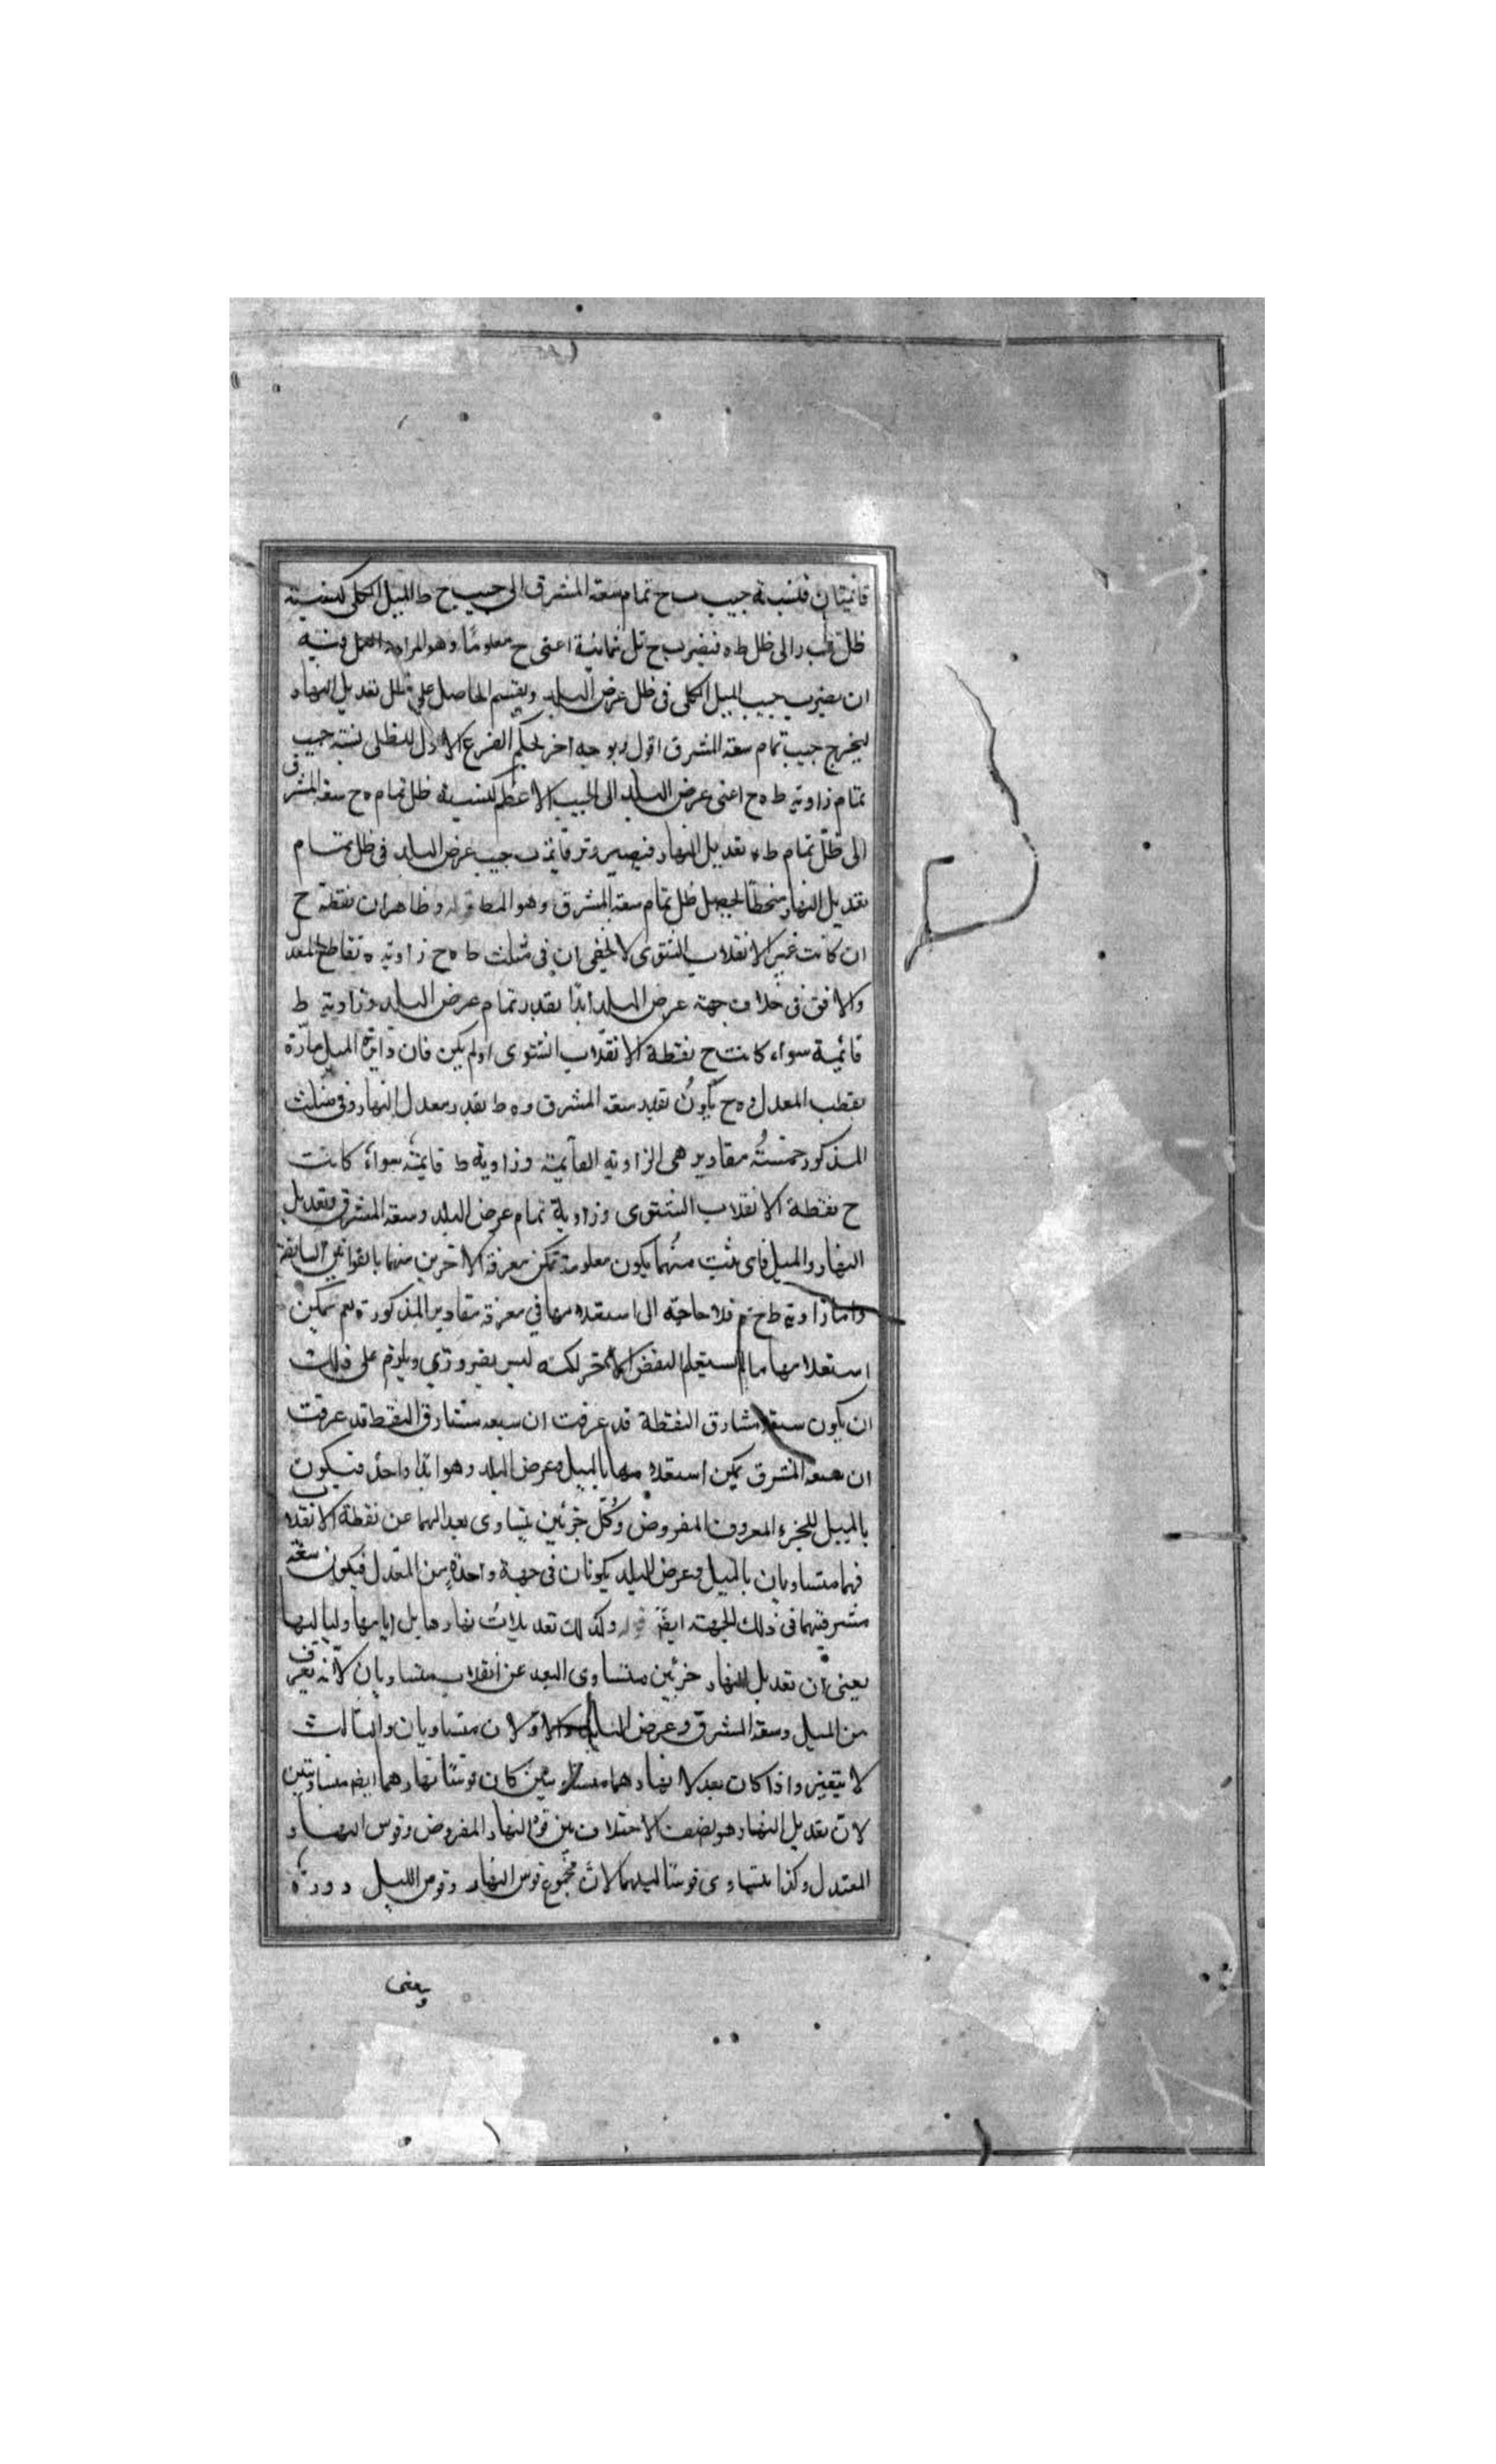 قائمتان فنسبة جيب ب ح تمام سعة المشرق الى جيب ح ط الميل الكلى كنسبة
ظل الى ظل ط ه فبضرب ح اعنى ح معلومًا وهو المراد
ان يضرب جيب الميل الكلى فى ظل عرض البلد ويقسم الحاصل على ظل تعديل النهار
ليخرج جيب تمام سعة المشرق اقول وبوجه اخر بحكم الفرع الاول للظلى نسبة جيب
تمام زاوية ط ه ح اعنى عرض البلد الى الجيب الاعظم كنسبة ظل تمام ه ح سعة المشرق
الى ظلّ تمام ط ه تعديل النهار فيضرب جيب عرض البلد فى ظل تمام
تعديل النهار منحطًا ليحصل ظل تمام سعة المشرق وهو المط قوله وظاهر ان نقطة ح
ان كانت غير الانقلاب الشتوى لا يخفى ان فى مثلث ط ه ح زاوية ه تقاطع المعدل
والافق فى خلاف جهة عرض البلد ابدًا بقدر تمام عرض البلد وزاوية ط
قائمة سواء كانت ح نقطة الانقلاب الشتوى او لم يكن فان دائرة الميل مارّة
بقطب المعدل و ه ح يكون بقدر سعة المشرق و ه ط بقدر معدل النهار وفى مثلث
المذكور خمسة مقادير هى الزاوية القائمة وزاوية ط قائمة سواء كانت
ح نقطة الانقلاب الشتوى وزاوية تمام عرض البلد وسعة المشرق وتعديل
النهار والميل فاى منهما يكون معلومة يمكن معرفة الاخرين منهما بالقوانين السابقة
واما زاوية ط ح ه فلا حاجة الى استعلامها فى معرفة مقادير المذكورة نعم يمكن
استعلامها لكنه ليس بضرورى ويلزم على ذلك
ان يكون سعة مشارق النقطة قد عرفت ان سعة مشارق النقط قد عرفت
ان سعة المشرق يمكن استعلامها بالميل وعرض البلد وهو ابدًا واحد فيكون
بالميل للجزء المعروف المفروض وكل جزئين يتساوى بعداهما عن نقطة الانقلاب
فهما متساويان بالميل وعرض البلد يكونان فى جهة واحدة من المعدل فيكون سعة
مشرقيهما فى ذلك الجهة ايضًا قوله وكذلك تعديلات نهارها بل ايامها ولياليها
يعنى ان تعديل النهار جزئين متساوى البعد عن انقلاب متساويان لانّه يعرف
من الميل وسعة المشرق وعرض البلد والاولان متساويان والثالث
لا يتغير واذا كان تعديلا نهارهما متساويين كان قوسًا نهارهما ايضًا متساويتين
لان تعديل النهار هو نصف الاختلاف بين قوس النهار المفروض وقوس النهار
المعتدل وكذا يتساوى قوسًا ليلهما لانّ مجموع قوس النهار وقوس الليل دورة
ويعنى